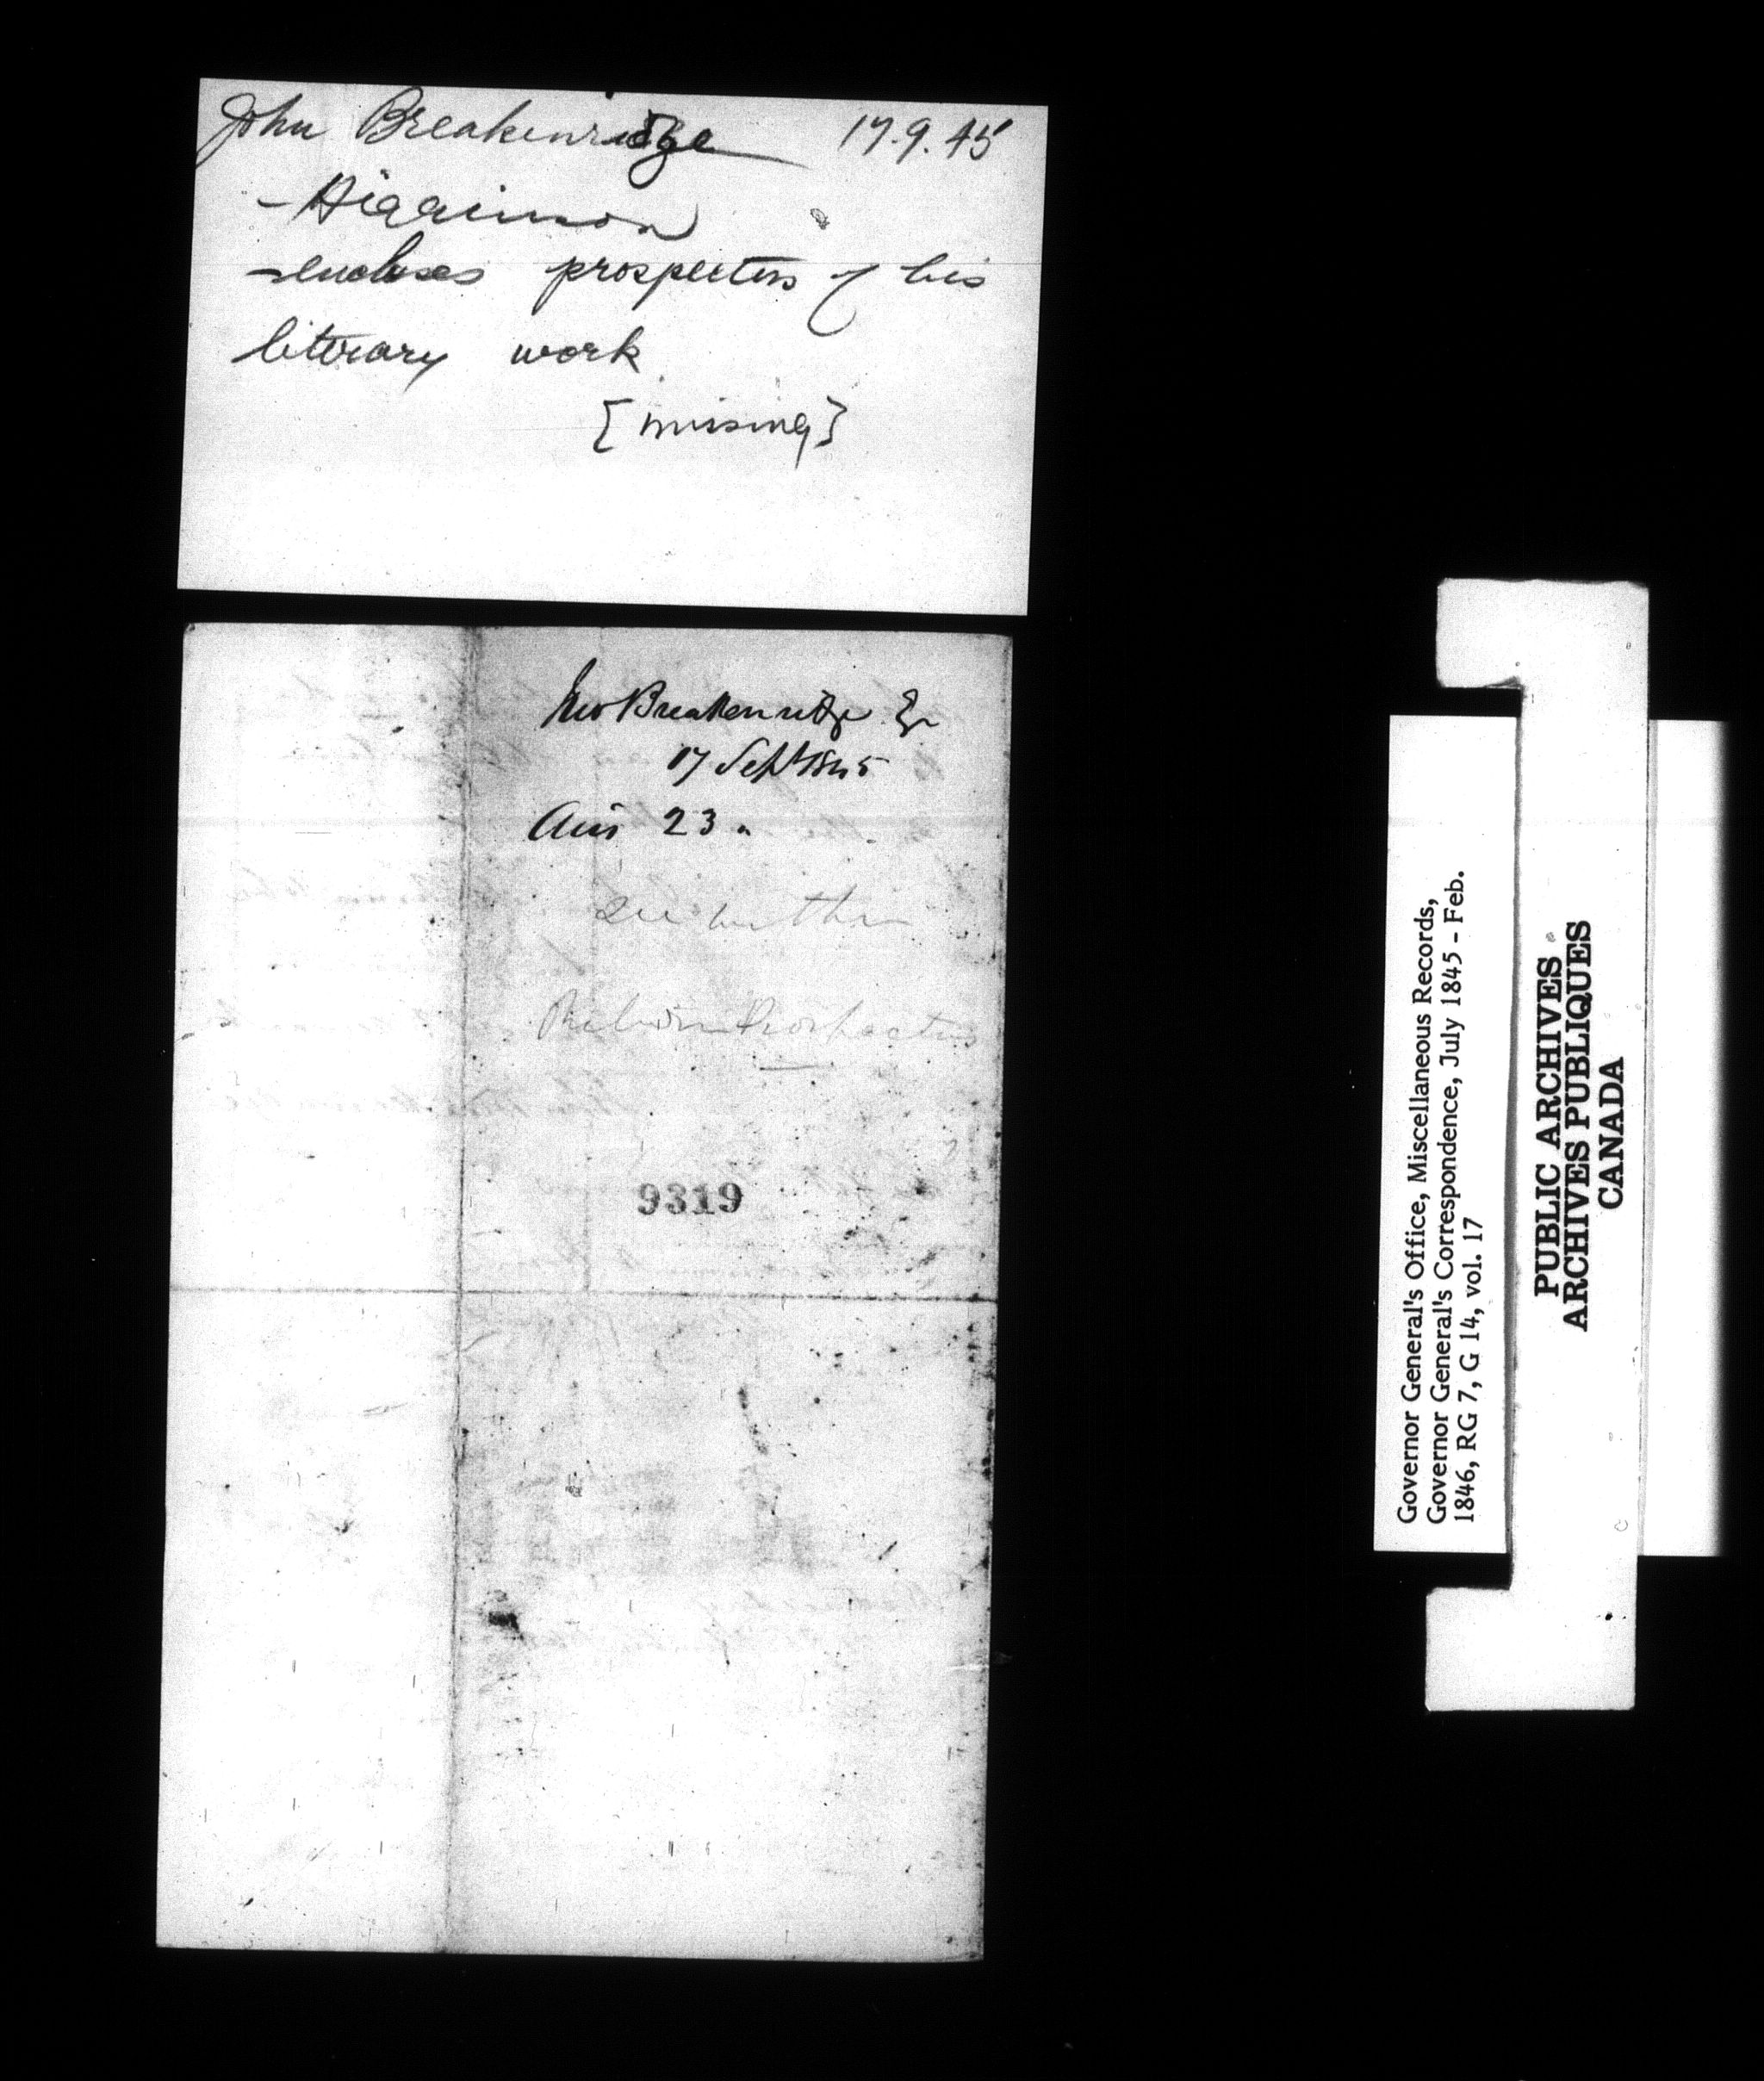 John Breakenridge 17.9.45
- Higginson
- encloses prospectus of his
literary work
[missing]
Jno Breakenridge Esq
17 Sept 1845
Ans 23 "
See within
Return Prospectus
9319
Governor General's Office, Miscellaneous Records,
Governor General's Correspondence, July 1845 - Feb.
1846, RG 7, G 14, vol. 17
PUBLIC ARCHIVES
ARCHIVES PUBLIQUES
CANADA